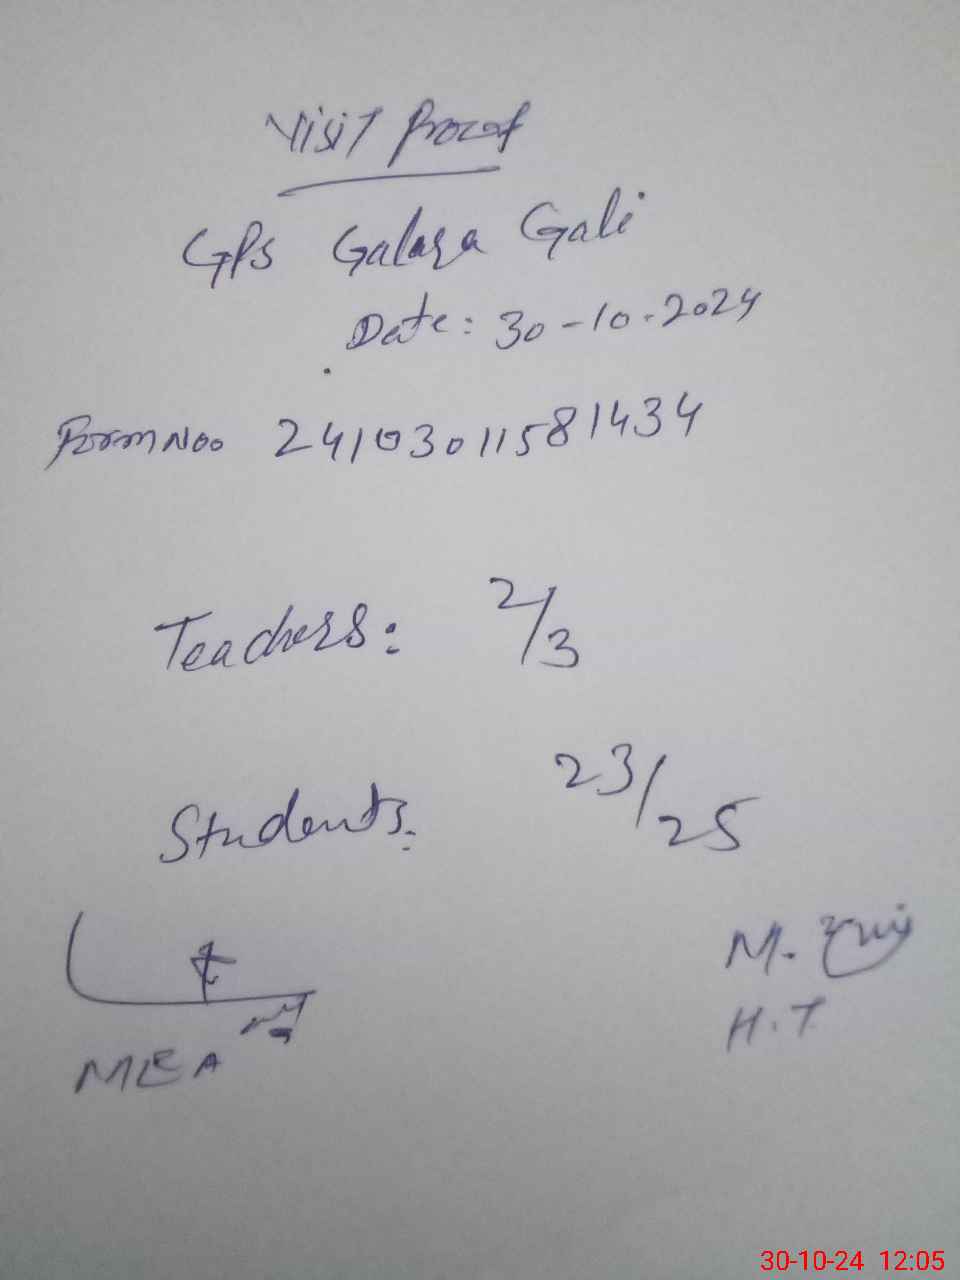 Visit Proof
GPS Galara Gali
Date: 30-10-2024
Form No. 24103011581434
Teachers: 2/3
Students: 23/25
M.
MEA
H.T
30-10-24 12:05